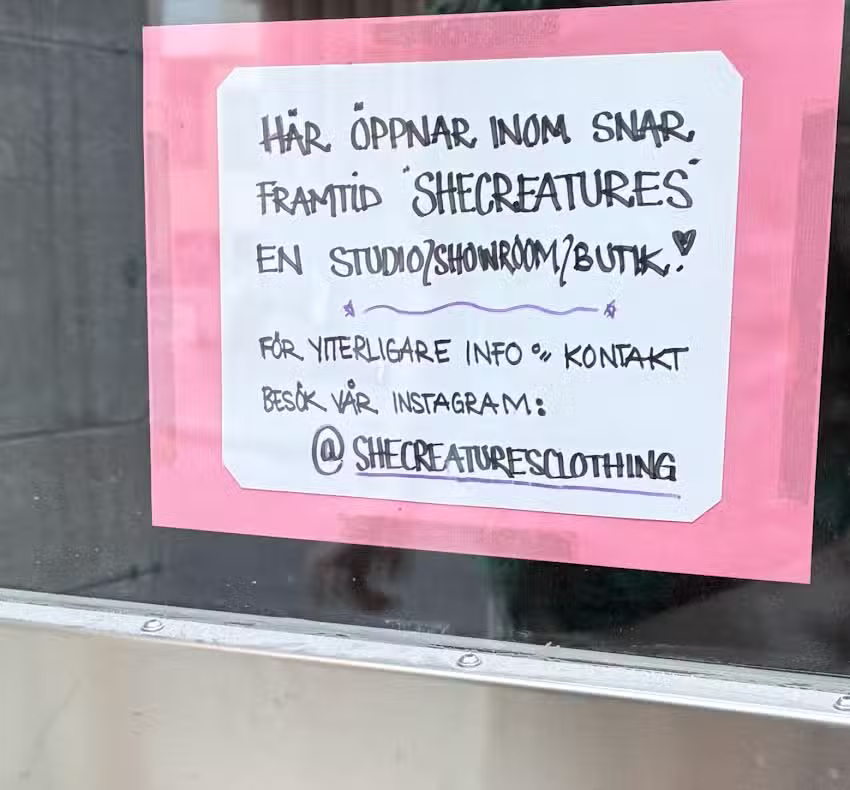 HÄR ÖPPNAR INOM SNAR
FRAMTID "SHECREATURES"
EN STUDIO/SHOWROOM/BUTIK.♥
FÖR YTTERLIGARE INFO % KONTAKT
BESÖK VÅR INSTAGRAM:
@SHECREATURESCLOTHING